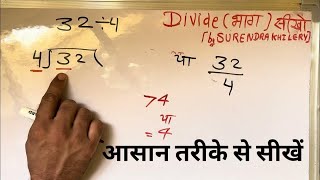 32÷4
Divide (भाग) सीखो
[by SURENDRA KHILERY]
4⟌32(
या 32/4
>4
या
=4
आसान तरीके से सीखें